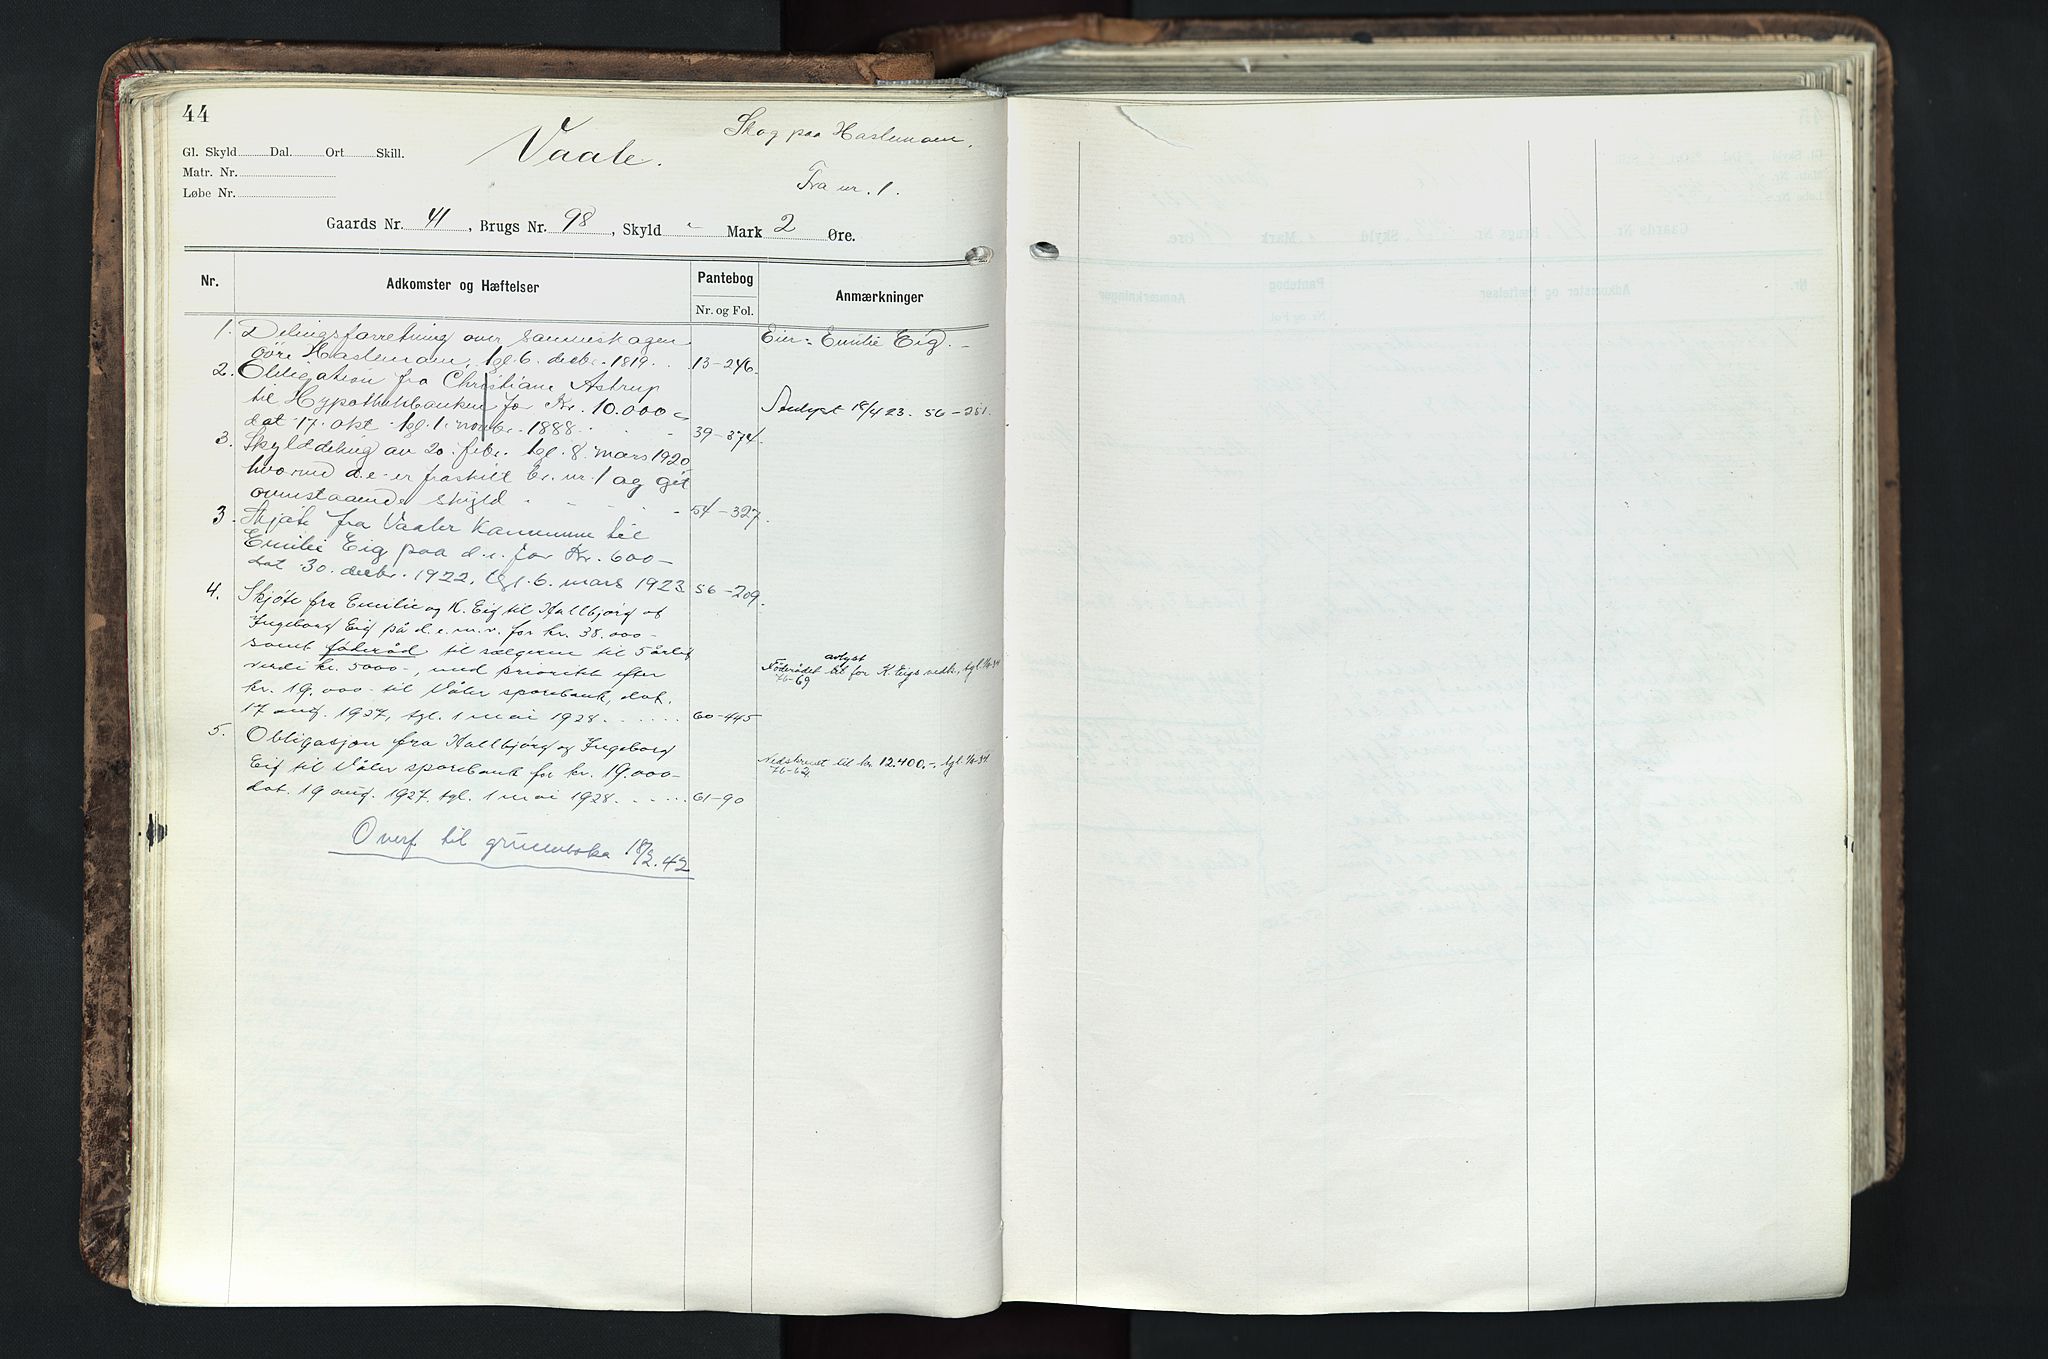 44
Skog paa Haslemoen.
Vaale.
Gl. Skyld Dal. Ort Skill.
Matr. Nr.
Løbe Nr.
Fra nr. 1.
Gaards Nr. 41, Brugs Nr. 98, Skyld " Mark 2 Øre.
Nr. Adkomster og Hæftelser Pantebog Anmærkninger
Nr. og Fol.
1. Delingsforretning over sameieskogen Eier: Emilie Eig. -
øvre Haslemoen, tgl 6. decbr. 1819. 13-246.
2. Obligation fra Christiane Astrup
til Hypothekbanken for Kr. 10.000 Avlyst 18/4 23. 56-251.
dat 17. okt. tgl. 1. novbr. 1888 39-374.
3. Skylddeling av 20. febr. tgl. 8. mars 1920
hvorved d.e. er fraskilt br. nr. 1 og git
ovenstaaende skyld 54-327.
3. Skjøte fra Vaaler Kommune til
Emilie Eig paa d.e. for Kr. 600-
dat 30. decbr. 1922, tgl. 6. mars 1923 56-209.
4. Skjøte fra Emilie og K. Eig til Hallbjørg og
Ingeborg Eig på d.e.m.v. for kr. 38.000-
samt føderåd til sælgerne til 5årlig
verdi kr. 5000-, med prioritet efter avlyst
Føderådet til for K. Eigs vedk., tgl.
76-69
kr. 19.000- til Våler sparebank, dat.
17 aug. 1927, tgl. 1 mai 1928 60-445
5. Obligasjon fra Hallbjørg og Ingeborg
Eig til Våler sparebank for kr. 19.000- Nedskrevet til kr 12.400.-, tgl.
76-62
dat. 19 aug. 1927, tgl. 1 mai 1928 61-90
Overf til grunnboka 18/2.42